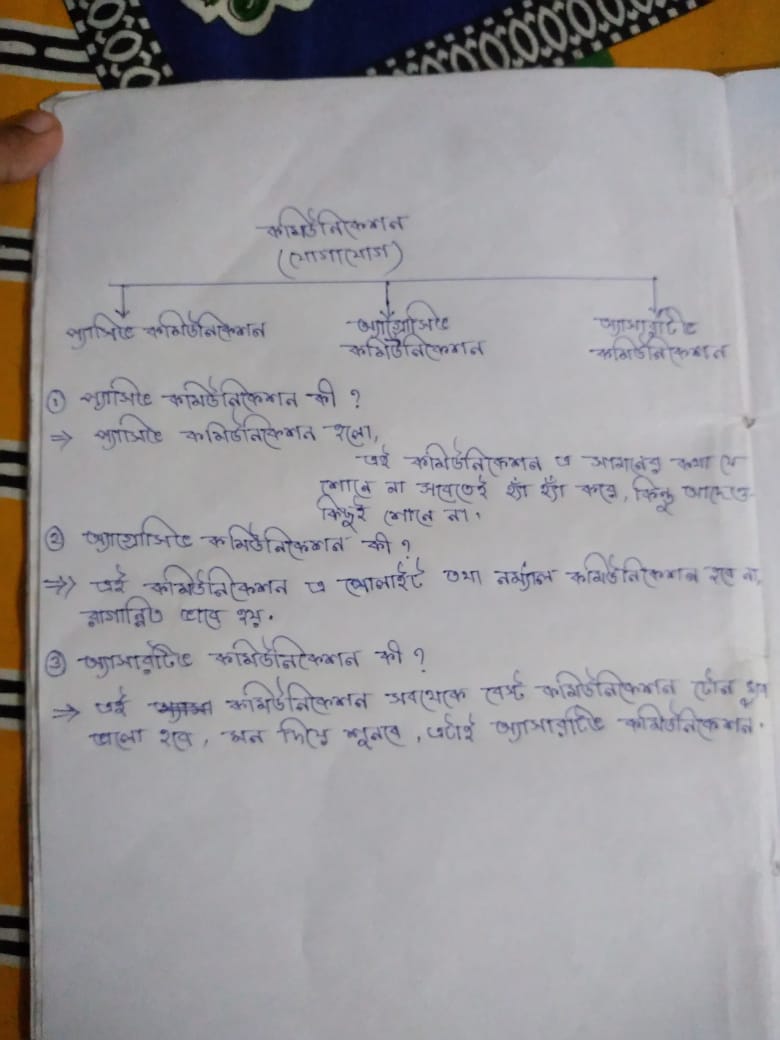 কমিউনিকেশন
(যোগাযোগ)
প্যাসিভ কমিউনিকেশন
অ্যাগ্রেসিভ
কমিউনিকেশন
অ্যাসারটিভ
কমিউনিকেশন
① প্যাসিভ কমিউনিকেশন কী ?
⇒ প্যাসিভ কমিউনিকেশন হলো,
এই কমিউনিকেশন এ সামনের কথা যে
শোনে না সবেতেই হ্যাঁ হ্যাঁ করে, কিন্তু আদেতে
কিছুই শোনে না।
② অ্যাগ্রেসিভ কমিউনিকেশন কী ?
⇒ এই কমিউনিকেশন এ পোলাইট তথা নর্ম্যাল কমিউনিকেশন হবে না,
রাগান্বিত ভাবে হয়।
③ অ্যাসারটিভ কমিউনিকেশন কী ?
⇒ এই কমিউনিকেশন সবথেকে বেস্ট কমিউনিকেশন টোন খুব
ভালো হবে, মন দিয়ে শুনবে, এটাই অ্যাসারটিভ কমিউনিকেশন।